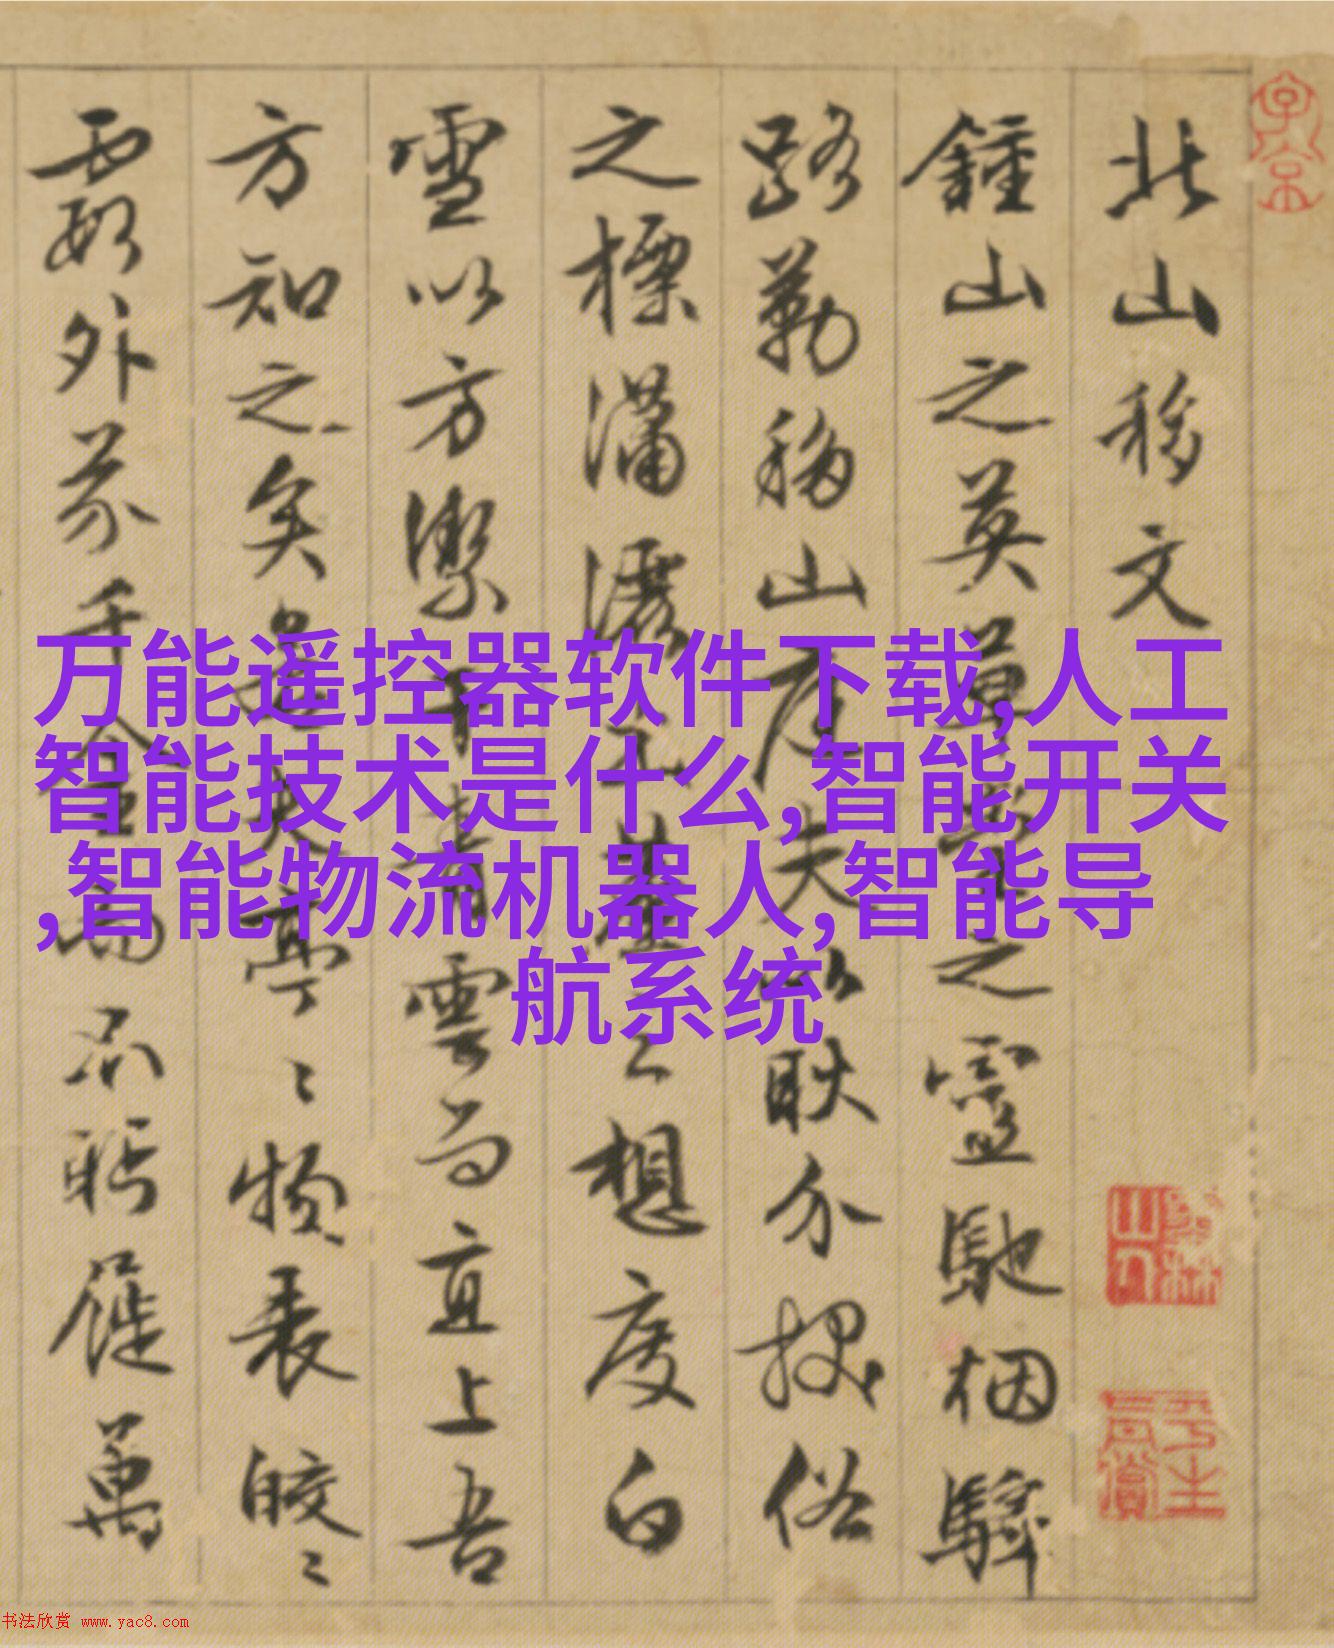 北山移文
鍾山之英草堂之靈馳烟驛
路勒移山庭夫以耿介拔俗
之標瀟灑出塵之想度白
雪以方潔干青雲而直上吾
方知之矣若其亭亭物表皎皎
霞外芥千金而不眄屣萬
万能遥控器软件下载,人工
智能技术是什么,智能开关
,智能物流机器人,智能导
航系统
书法欣赏 www.yac8.com